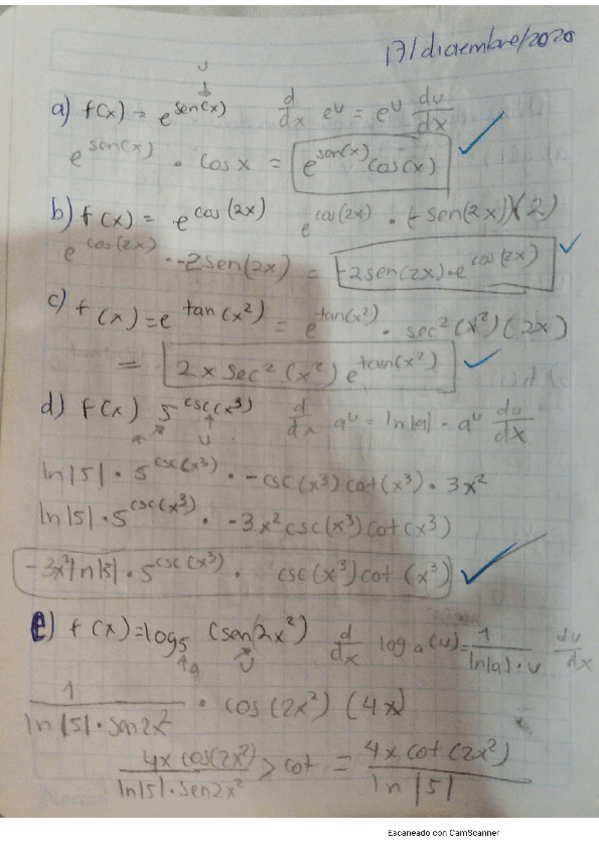 17/diciembre/2020
u
↓
a) f(x) = e^sen(x) d/dx e^u = e^u du/dx
e^sen(x) · cos x = e^sen(x) cos(x)
b) f(x) = e^cos(2x) e^cos(2x) · (-sen(2x))(2)
e^cos(2x) · -2sen(2x) = -2sen(2x)·e^cos(2x)
c) f(x) = e^tan(x²) = e^tan(x²) · sec²(x²)(2x)
= 2x sec²(x²) e^tan(x²)
d) f(x) 5^csc(x³) d/dx a^u = ln|a| · a^u du/dx
a u
ln|5| · 5^csc(x³) · -csc(x³)cot(x³) · 3x²
ln|5| · 5^csc(x³) · -3x²csc(x³)cot(x³)
-3x²ln|5| · 5^csc(x³) · csc(x³)cot(x³)
e) f(x) = log₅ (sen(2x²) d/dx log a(u) = 1/ln|a|·u du/dx
a u
1/ln|5|·sen2x² · cos(2x²)(4x)
4x cos(2x²)/ln|5|·sen2x² > cot = 4x cot(2x²)/ln|5|
Escaneado con CamScanner